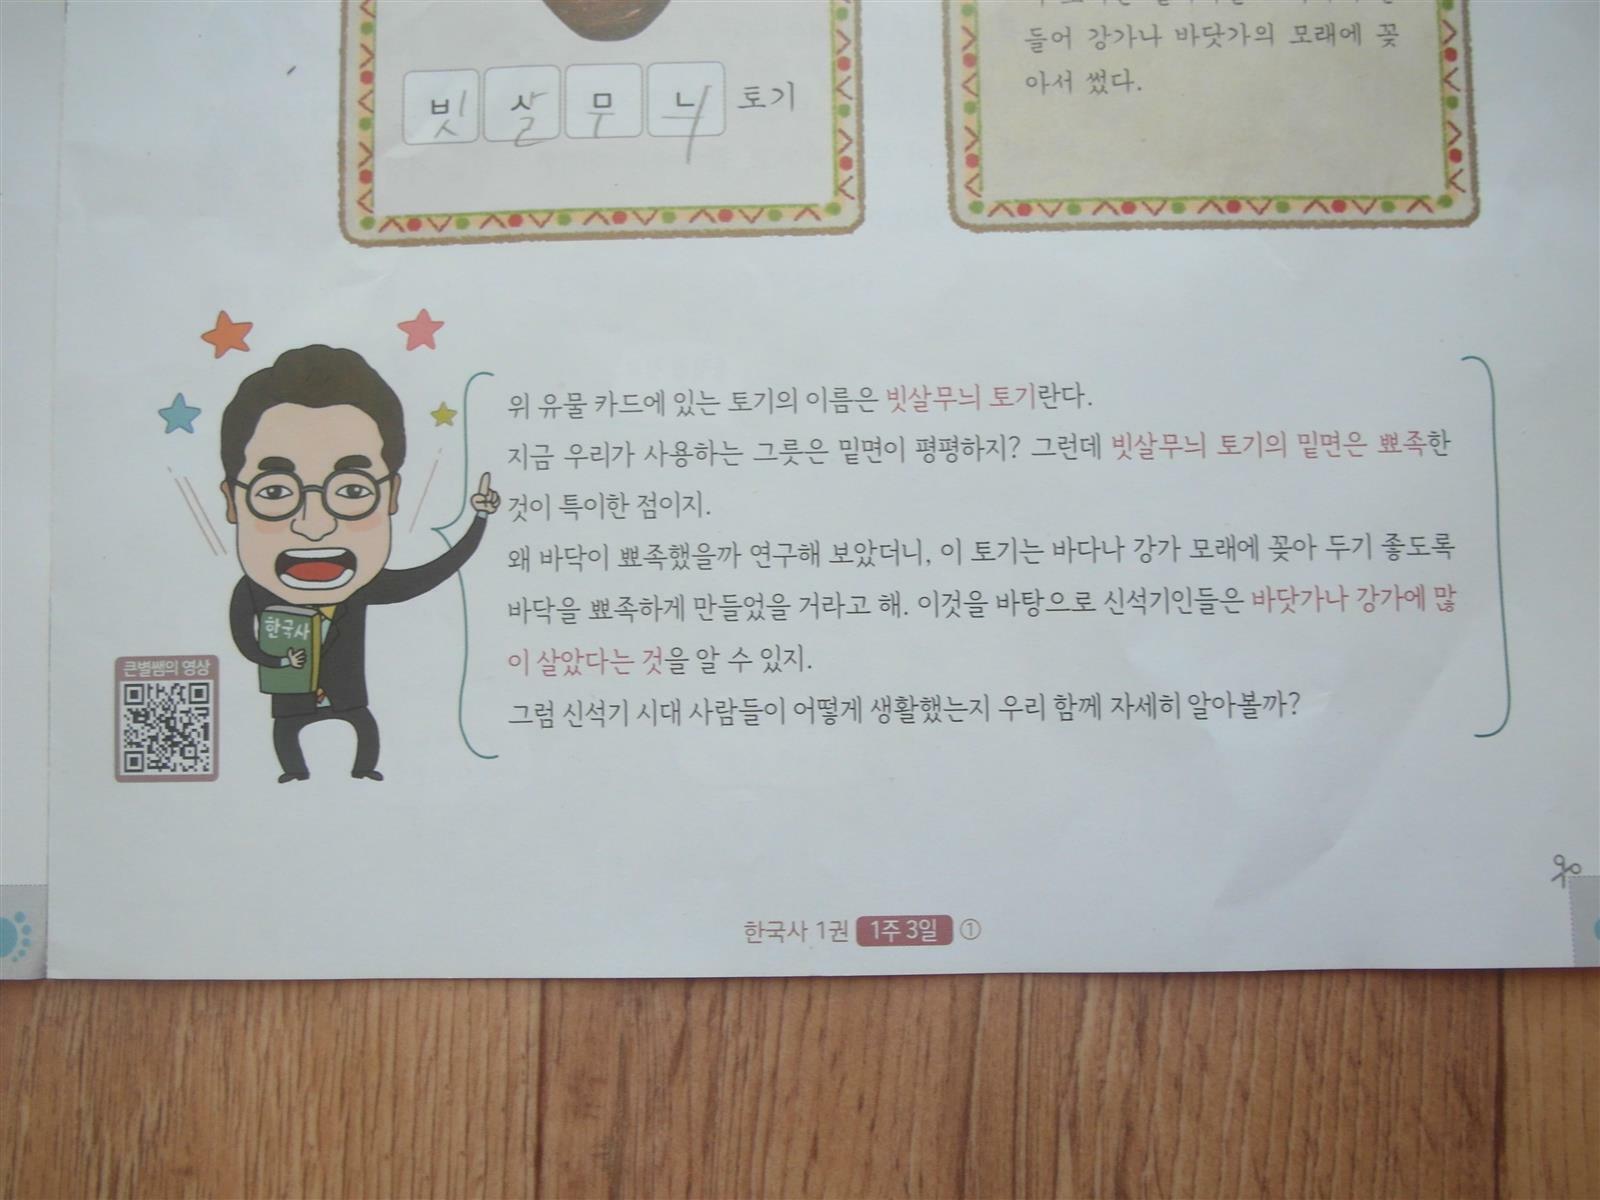 들어 강가나 바닷가의 모래에 꽂
아서 썼다.
빗살무늬 토기
위 유물 카드에 있는 토기의 이름은 빗살무늬 토기란다.
지금 우리가 사용하는 그릇은 밑면이 평평하지? 그런데 빗살무늬 토기의 밑면은 뾰족한
것이 특이한 점이지.
왜 바닥이 뾰족했을까 연구해 보았더니, 이 토기는 바다나 강가 모래에 꽂아 두기 좋도록
바닥을 뾰족하게 만들었을 거라고 해. 이것을 바탕으로 신석기인들은 바닷가나 강가에 많
이 살았다는 것을 알 수 있지.
그럼 신석기 시대 사람들이 어떻게 생활했는지 우리 함께 자세히 알아볼까?
한국사
큰별쌤의 영상
한국사 1권 1주 3일 ①